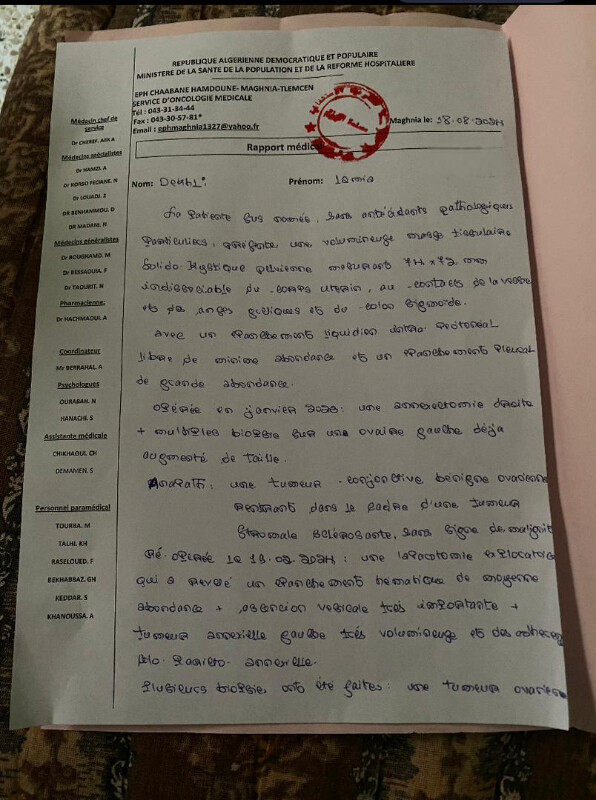 REPUBLIQUE ALGERIENNE DEMOCRATIQUE ET POPULAIRE
MINISTERE DE LA SANTE DE LA POPULATION ET DE LA REFORME HOSPITALIERE
EPH CHAABANE HAMDOUNE- MAGHNIA-TLEMCEN
SERVICE D'ONCOLOGIE MEDICALE
Tél : 043-31-34-44
Fax : 043-30-57-81*
Email : ephmaghnia1327@yahoo.fr
Maghnia le: 18.08.2024
Rapport médical
Nom:
Prénom: lamia
Médecin chef de
service
Dr CHERIF. ADLA
Médecins spécialistes
Dr HAMZI. A
Dr KORSO FECIANE. N
Dr LOUADJ. Z
DR BENHAMMOU. D
DR MADANI. N
Médecins généralistes
Dr BOUGHARD. M
Dr BESSAOUIA. F
Dr TAOURIT. N
Pharmacienne:
Dr HACHMAOUI. A
Coordinateur
Mr BERRAHAL. A
Psychologues
OURABAH. N
HANACHI. S
Assistante médicale
CHIKHAOUI. CH
DEMAMEN. S
Personnel paramédical
TOURBA. M
TALHI. KH
RASELOUED. F
BEKHABBAZ. GH
KEDDAR. S
KHANOUSSA. A
La Patiente sus nomée, sans antécédants pathologiques
particuliers, présente une volumineuse masse tissulaire
Solido-Kystique pelvienne mesurant 74 x 72 mm
indissociable du corps uterin, au contact de la vessie
et des anses greliques et du colon sigmoide.
avec un epanchement liquidien intra peritoneal
libre de minime abondance et un epanchement pleural
de grande abondance.
Opérée en janvier 2023: une annexectomie droite
+ multiples biopsie sur une ovaire gauche déja
augmenté de taille.
AnaPath: une tumeur conjonctive bénigne ovarienne
rentrant dans le cadre d'une tumeur
stromale sclérosante, sans signe de malignité
Ré. operée le 19.02.2024: une laparotomie exploratrice
qui a revelé un epanchement hematique de moyenne
abondance + vesicale très importante +
tumeur annexielle gauche très volumineuse et des adherences
annexielle.
Plusieurs biopsie ont été faites: une tumeur ovarienne